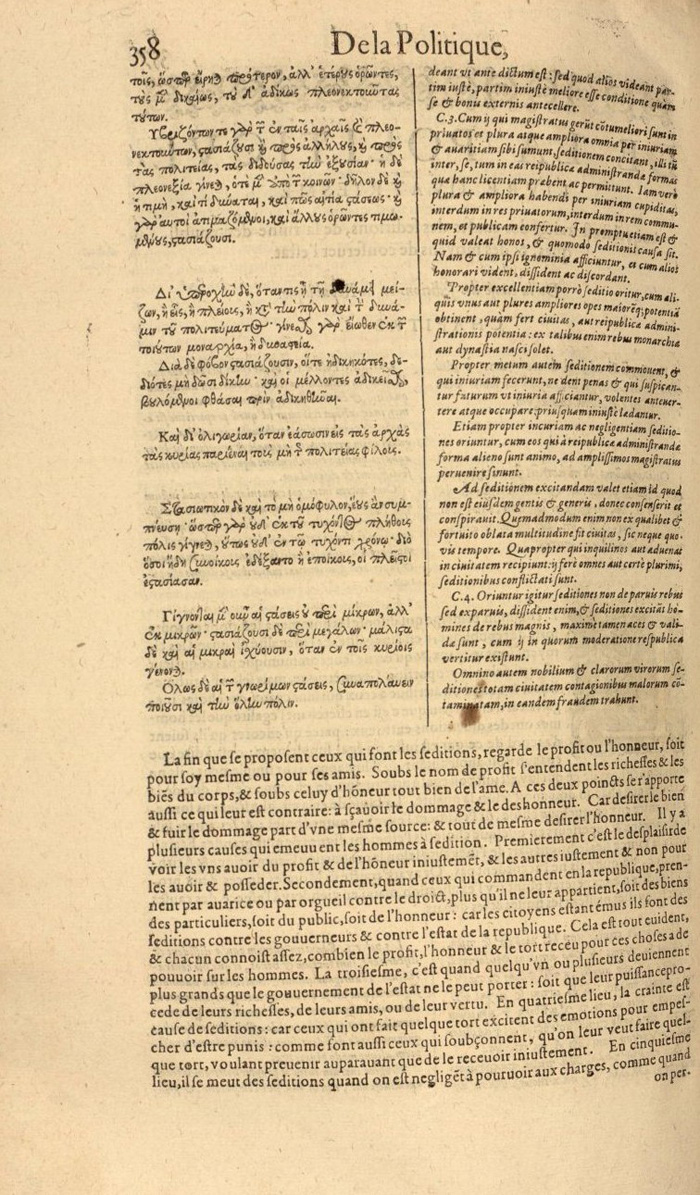 358
De la Politique,
τοῖς, ὥσπερ εἴρηται πρότερον, ἀλλ' ἑτέρους ὁρῶντες,
τοὺς μὲν δικαίως, τοὺς δ' ἀδίκως πλεονεκτοῦντας
τούτων.
Υβριζόντων τε γὰρ τῶν ἐν ταῖς ἀρχαῖς καὶ πλεο-
νεκτούντων, στασιάζουσι καὶ πρὸς ἀλλήλους, καὶ πρὸς
τὰς πολιτείας, τὰς διδούσας τὴν ἐξουσίαν· ἡ δὲ
πλεονεξία γίνεται, ὁτὲ μὲν ἀπὸ τῶν κοινῶν· δῆλον δὲ καὶ
ἡ τιμὴ, καὶ τί δύναται, καὶ πῶς αἰτία στάσεως· καὶ
γὰρ αὐτοὶ ἀτιμαζόμενοι, καὶ ἄλλους ὁρῶντες τιμω-
μένους, στασιάζουσι.
Δι' ὑπεροχὴν δὲ, ὅταν τις ᾖ τῇ δυνάμει μεί-
ζων, ἢ εἷς, ἢ πλείοις, ἢ κατὰ τὴν πόλιν καὶ τὴν δύνα-
μιν τοῦ πολιτεύματος γίνεσθαι γὰρ εἴωθεν ἐκ τῶν
τοιούτων μοναρχία, ἢ δυναστεία.
Διὰ δὲ φόβον στασιάζουσιν, οἵτε ἠδικηκότες, δε-
διότες μὴ δῶσι δίκην· καὶ οἱ μέλλοντες ἀδικεῖσθαι,
βουλόμενοι φθάσαι πρὶν ἀδικηθῆναι.
Καὶ δι' ὀλιγωρίαν, ὅταν ἐάσωσιν εἰς τὰς ἀρχὰς
τὰς κυρίας παριέναι τοὺς μὴ τῆς πολιτείας φίλοις.
Στασιωτικὸν δὲ καὶ τὸ μὴ ὁμόφυλον, ἕως ἂν συμ-
πνεύσῃ· ὥσπερ γὰρ οὐδ' ἐκ τοῦ τυχόντος πλήθους
πόλις γίγνεται, οὕτως οὐδ' ἐν τῷ τυχόντι χρόνῳ· διὸ
ὅσοι ἤδη συνοίκοις ἐδέξαντο ἢ ἐποίκοις, οἱ πλεῖστοι
ἐστασίασαν.
Γίγνονται μὲν οὖν αἱ στάσεις οὐ περὶ μικρῶν, ἀλλ'
ἐκ μικρῶν· στασιάζουσι δὲ περὶ μεγάλων· μάλιστα
δὲ καὶ αἱ μικραὶ ἰσχύουσιν, ὅταν ἐν τοῖς κυρίοις
γένονται.
Ὅλως δὲ αἱ τῶν γνωρίμων στάσεις, συναπολαύειν
ποιοῦσι καὶ τὴν ὅλην πόλιν.
deant vt ante dictum est: sed quod alios videant par-
tim iustè, partim iniustè meliore esse conditione quàm
se & bonis externis antecellere.
C.3. Cum ij qui magistratus gerūt cōtumeliosi sunt in
priuatos et plura atque ampliora omnia per iniuriam
& auaritiam sibi sumunt, seditionem concitant, illi tū
inter se, tum in eas reipublicæ administrandæ formas
quæ hanc licentiam præbent ac permittunt. Iam verò
plura & ampliora habendi per iniuriam cupiditas,
interdum in res priuatorum, interdum in rem commu-
nem, et publicam confertur. In promptu etiam est &
quid valeat honos, & quomodo seditionis causa sit.
Nam & cum ipsi ignominia afficiuntur, et cum alios
honorari vident, dissident ac discordant.
Propter excellentiam porrò seditio oritur, cum ali-
quis vnus aut plures ampliores opes maioréq; potentiā
obtinent, quàm fert ciuitas, aut reipublicæ admini-
strationis potentia: ex talibus enim rebus monarchia
aut dynastia nasci solet.
Propter metum autem seditionem commouent, &
qui iniuriam fecerunt, ne dent pœnas & qui suspican-
tur futurum vt iniuria afficiantur, volentes anteuer-
tere atque occupare, priusquam iniustè lædantur.
Etiam propter incuriam ac negligentiam seditio-
nes oriuntur, cum eos qui à reipublicæ administrandæ
forma alieno sunt animo, ad amplissimos magistratus
peruenire sinunt.
Ad seditionem excitandam valet etiam id quod
non est eiusdem gentis & generis, donec consenserit et
conspirauit. Quemadmodum enim non ex qualibet &
fortuito oblata multitudine fit ciuitas, sic neque quo-
vis tempore. Quapropter qui inquilinos aut aduenas
in ciuitatem recipiunt: ij ferè omnes aut certè plurimi,
seditionibus conflictati sunt.
C.4. Oriuntur igitur seditiones non de paruis rebus
sed ex paruis, dissident enim, & seditiones excitāt ho-
mines de rebus magnis, maximè tamen aces & vali-
dæ sunt, cum ij in quorum moderatione respublica
vertitur existunt.
Omnino autem nobilium & clarorum virorum se-
ditiones totam ciuitatem contagionibus malorum cō-
taminatam, in eandem fraudem trahunt.
La fin que se proposent ceux qui font les seditions, regarde le profit ou l'honneur, soit
pour soy mesme ou pour ses amis. Soubs le nom de profit s'entendent les richesses & les
biēs du corps, & soubs celuy d'hōneur tout bien de l'ame. A ces deux poincts se rapporte
aussi ce qui leur est contraire: à sçauoir le dommage & le deshonneur. Car desirer le bien
& fuir le dommage part d'vne mesme source: & tout de mesme desirer l'honneur. Il y a
plusieurs causes qui emeuuent les hommes à sedition. Premierement c'est le desplaisir de
voir les vns auoir du profit & de l'hōneur iniustemēt, & les autres iustement & non pour
les auoir & posseder. Secondement, quand ceux qui commandent en la republique, pren-
nent par auarice ou par orgueil contre le droict, plus qu'il ne leur appartient, soit des biens
des particuliers, soit du public, soit de l'honneur: car les citoyens estant émus ils font des
seditions contre les gouuerneurs & contre l'estat de la republique. Cela est tout euident,
& chacun connoist assez, combien le profit, l'honneur & le tort receu pour ces choses a de
pouuoir sur les hommes. La troisiesme, c'est quand quelqu'vn ou plusieurs deuiennent
plus grands que le gouuernement de l'estat ne le peut porter: soit que leur puissance pro-
cede de leurs richesses, de leurs amis, ou de leur vertu. En quatriesme lieu, la crainte est
cause de seditions: car ceux qui ont fait quelque tort excitent des emotions pour empes-
cher d'estre punis: comme font aussi ceux qui soubçonnent, qu'on leur veut faire quel-
que tort, voulant preuenir auparauant que de le receuoir iniustement. En cinquiesme
lieu, il se meut des seditions quand on est negligēt à pouruoir aux charges, comme quand
on per-